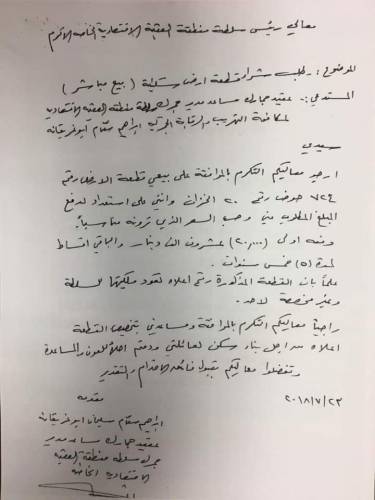 معالي رئيس سلطة منطقة العقبة الاقتصادية الخاصة الأكرم
الموضوع : طلب شراء قطعة ارض سكنية ( بيع مباشر )
المستدعي :- عقيد جمارك مساعد مدير جمرك سلطة منطقة العقبة الاقتصادية
لمكافحة التهريب والرقابة الجمركية ابراهيم سلام أبوغريقانه
سيدي
ارجو معاليكم التكرم بالموافقة على بيعي قطعة الارض رقم
٧٢٤ حوض رقم ٢٠ الخزان وانني على استعداد لدفع
المبلغ المطلوب مني وحسب السعر الذي ترونه مناسباً
دفعه اولى (٢٠,٠٠٠) عشرون الف دينار والباقي اقساط
لمدة (٥) خمس سنوات .
علماً بان القطعة المذكورة رقم اعلاه تعود ملكيتها للسلطة
وغير مخصصة لاحد .
راجياً معاليكم التكرم بالموافقة ومساعدتي بتخصيص القطعة
اعلاه من اجل بناء سكن لعائلتي ودمتم اهلاً للعون والمساعدة
وتفضلوا معاليكم بقبول فائق الاحترام والتقدير
٢٠١٨/٧/٢٣
مقدمه
ابراهيم سلام سليمان ابوغريقانه
عقيد جمارك مساعد مدير
جمرك سلطة منطقة العقبة
الاقتصادية الخاصة